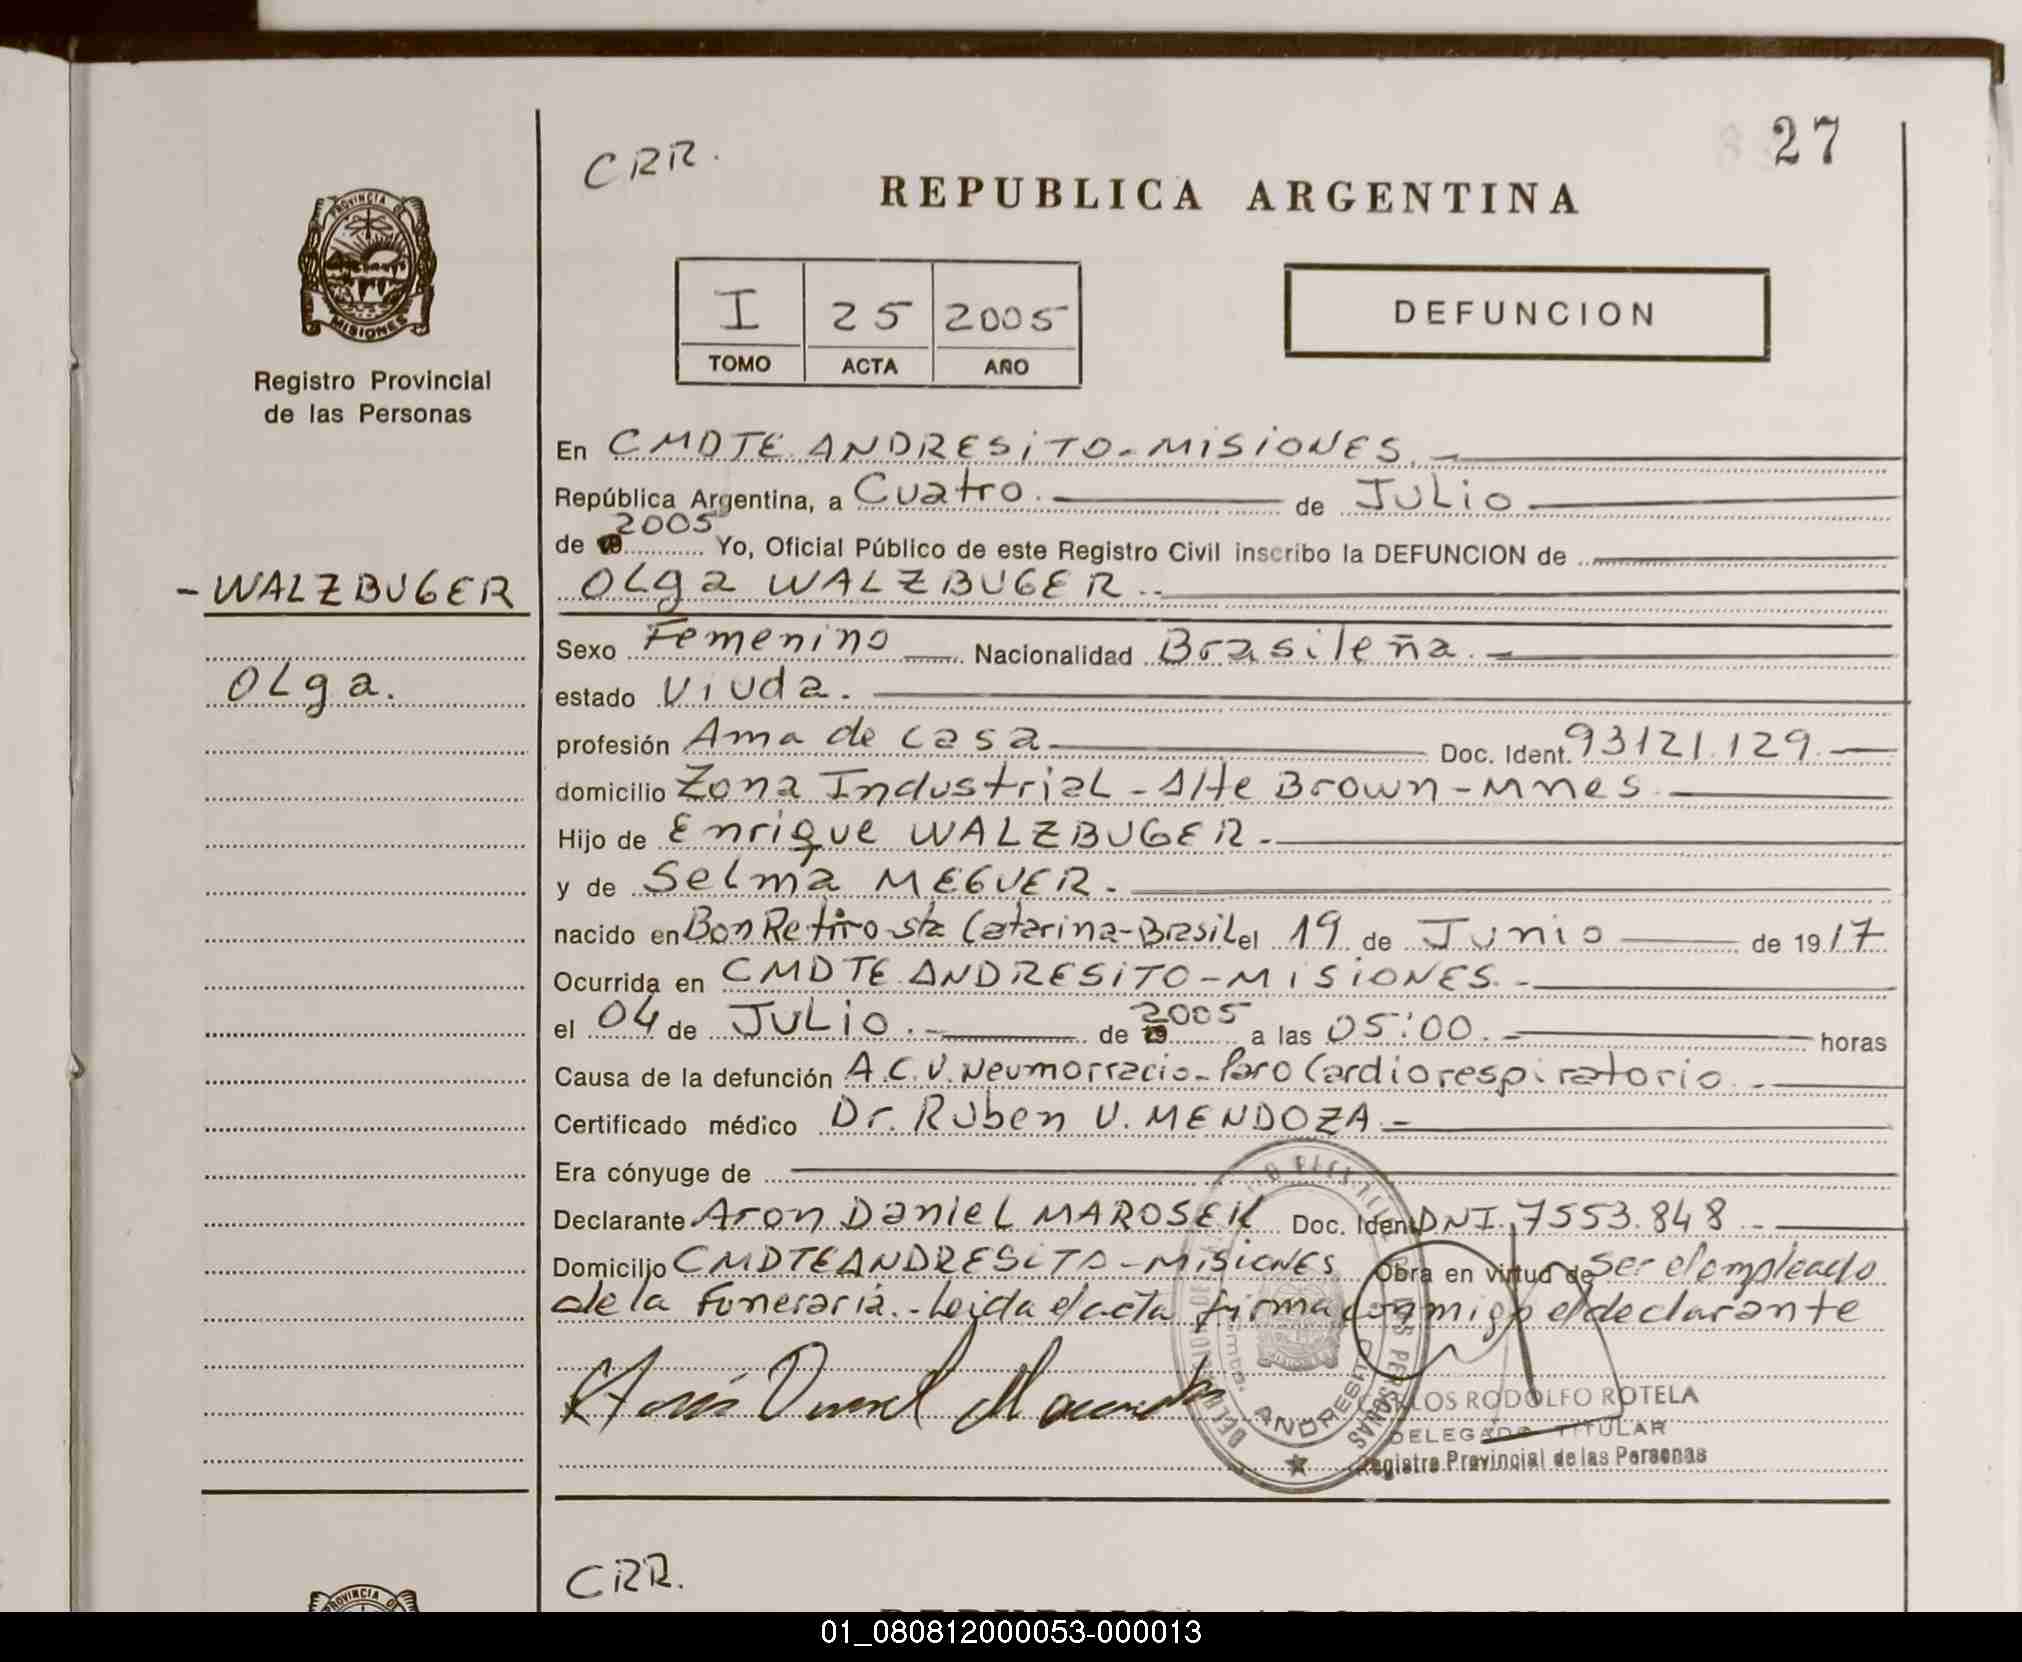 CRR.
27
REPUBLICA ARGENTINA
PROVINCIA DE
MISIONES
Registro Provincial
de las Personas
I 25 2005
TOMO ACTA AÑO
DEFUNCION
En CMDTE ANDRESITO - MISIONES.
República Argentina, a Cuatro. de JULIO
de 2005 Yo, Oficial Público de este Registro Civil inscribo la DEFUNCION de
- WALZBUGER
OLga WALZBUGER.
Sexo Femenino Nacionalidad Brasileña.
OLga.
estado Viuda.
profesión Ama de casa Doc. Ident. 93121.129
domicilio Zona Industrial - Alte Brown - Mnes.
Hijo de Enrique WALZBUGER.
y de Selma MEGUER.
nacido en Bon Retiro Sta Catarina - Brasil el 19 de Junio de 19 17
Ocurrida en CMDTE ANDRESITO - MISIONES.
el 04 de JULIO. de 2005 a las 05:00. horas
Causa de la defunción A.C.V. Neumorracio - Paro Cardiorespiratorio.
Certificado médico Dr. Ruben V. MENDOZA.
Era cónyuge de
Declarante Aron Daniel MAROSEK Doc. Ident DNI. 7553.848
Domicilio CMDTE ANDRESITO - MISIONES Obra en virtud de Ser el empleado
de la Funeraria. - Leida el acta firma conmigo el declarante
ANDRESITO
CARLOS RODOLFO ROTELA
DELEGADO TITULAR
Registro Provincial de las Personas
CRR.
PROVINCIA DE
REPUBLICA ARGENTINA
01_080812000053-000013